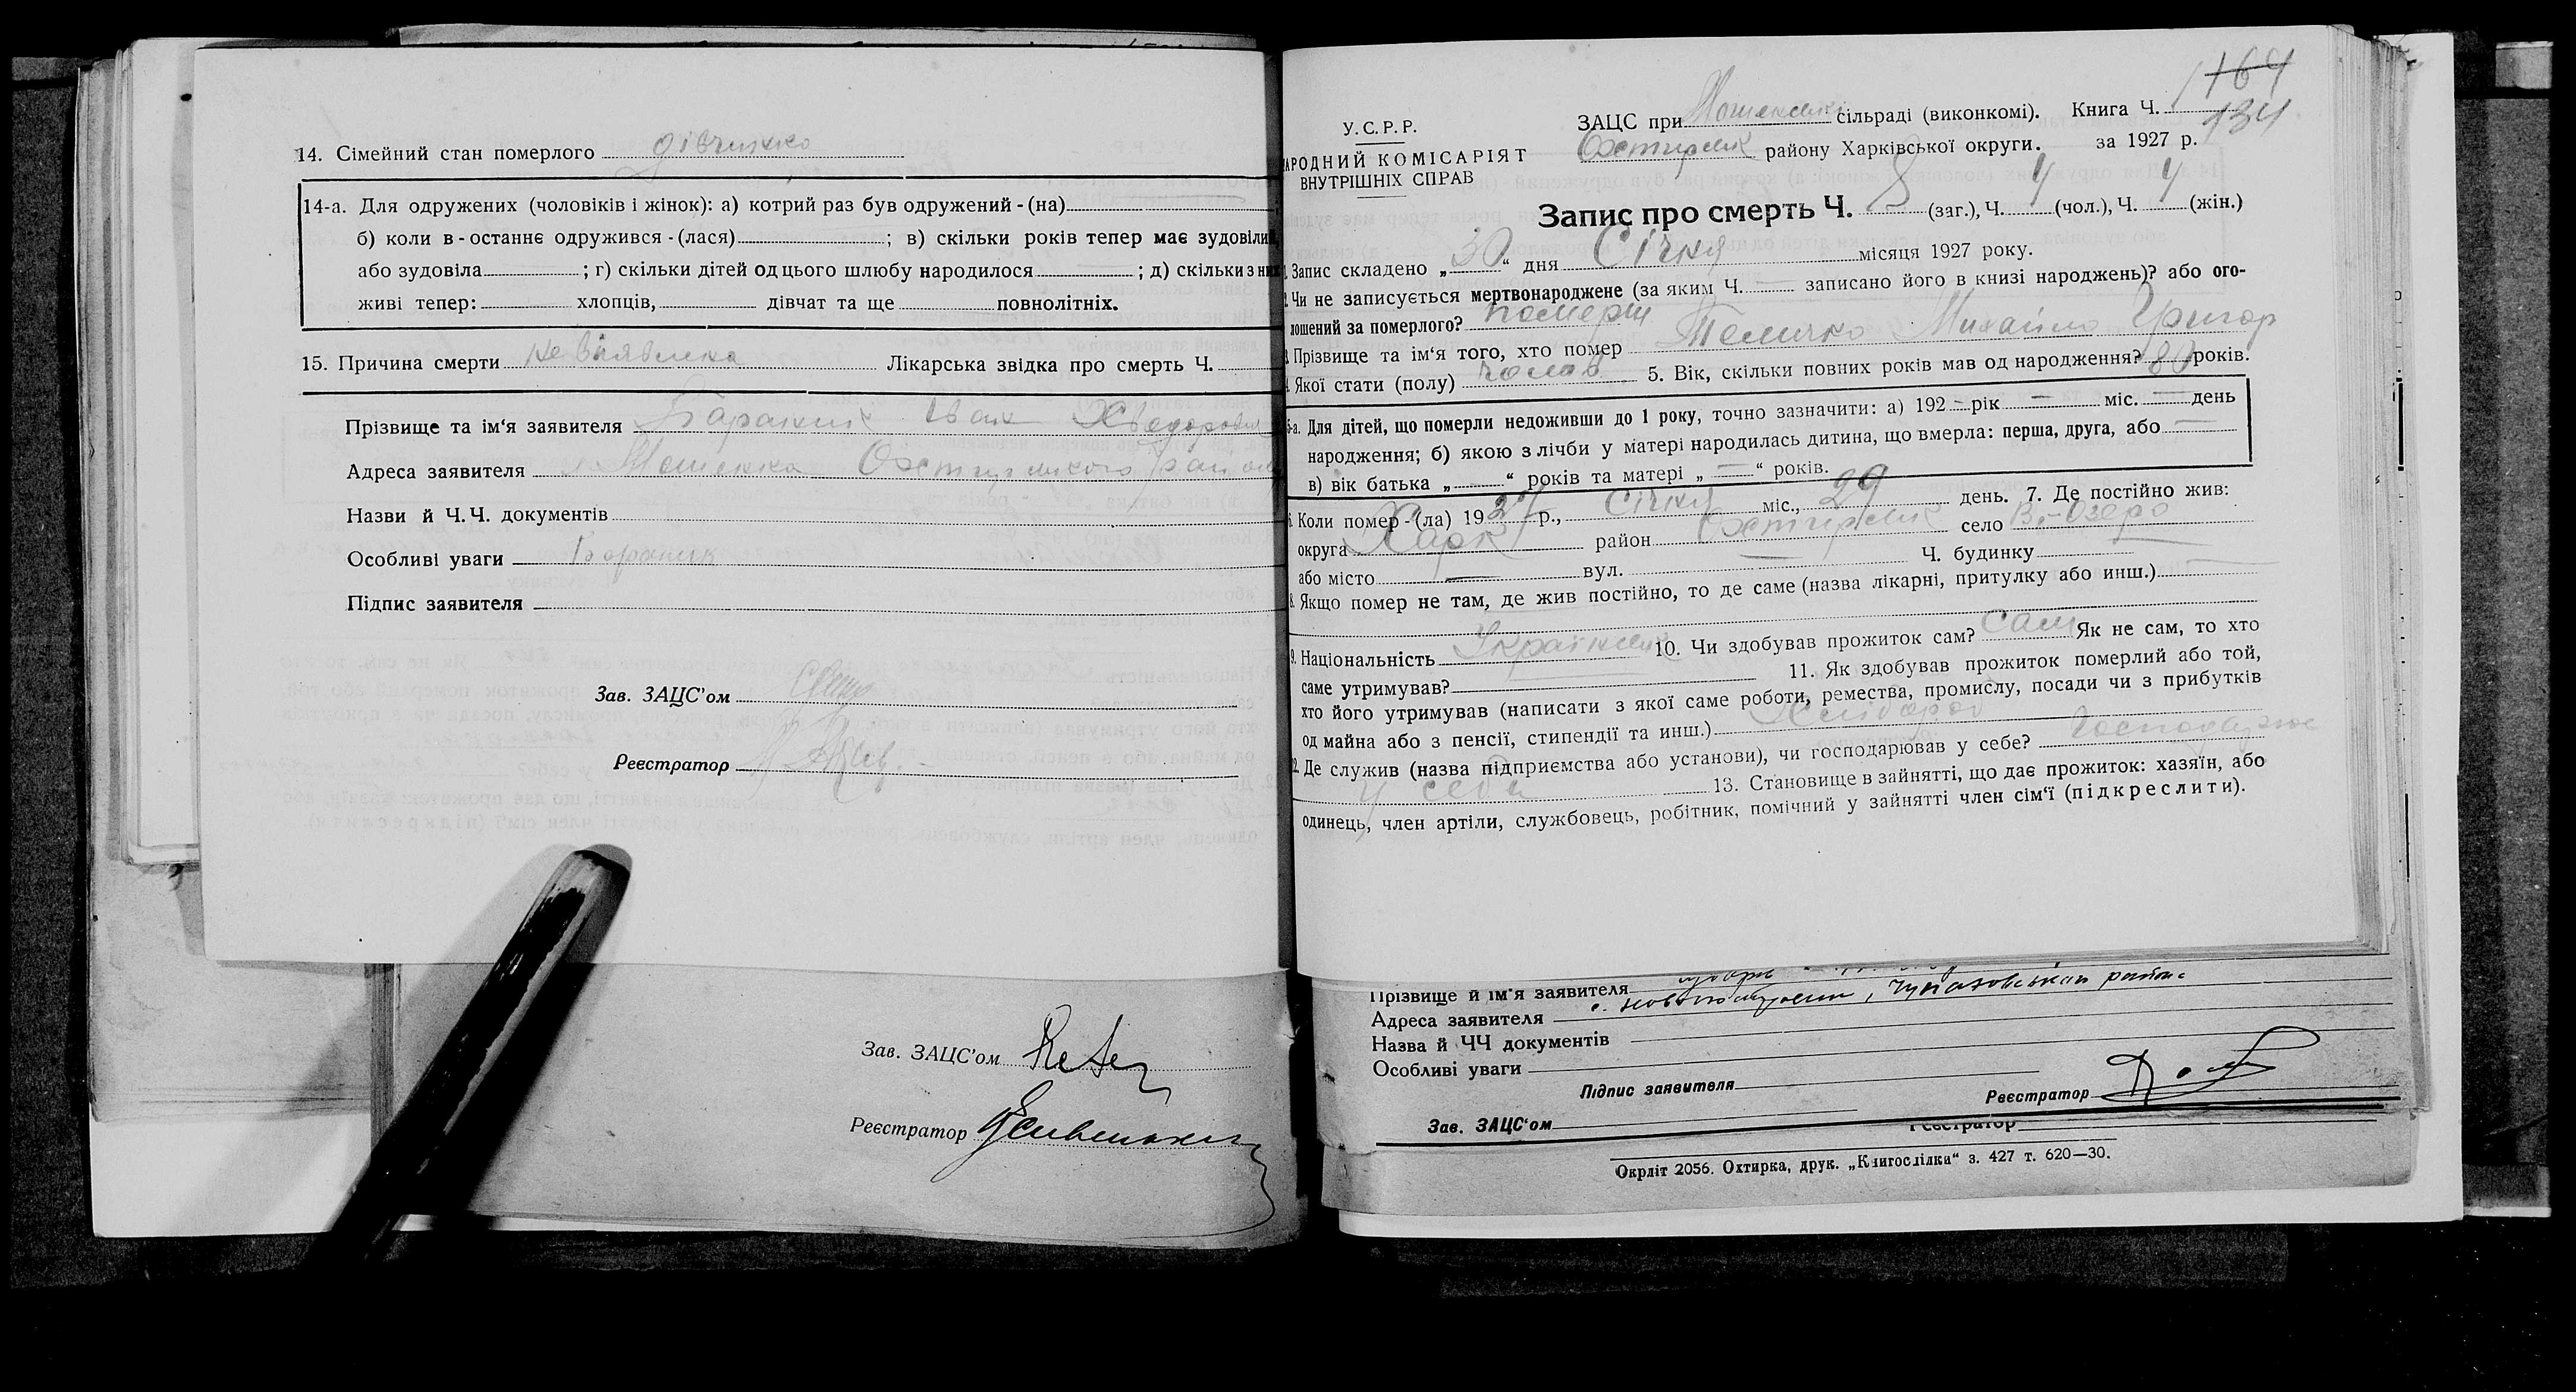 14. Сімейний стан померлого дівчинка
14-а. Для одружених (чоловіків і жінок): а) котрий раз був одружений - (на)
б) коли в - останнє одружився - (лася) ; в) скільки років тепер має зудовілий,
або зудовіла ; г) скільки дітей од цього шлюбу народилося ; д) скільки з них
живі тепер: хлопців, дівчат та ще повнолітніх.
15. Причина смерти не виявлена Лікарська звідка про смерть Ч.
Прізвище та ім'я заявителя Іван
Адреса заявителя Охтирського району
Назви й Ч.Ч. документів
Особливі уваги
Підпис заявителя
Зав. ЗАЦС'ом
Реєстратор
Зав. ЗАЦС'ом
Реєстратор
164
134
У.С.Р.Р.
НАРОДНИЙ КОМІСАРІЯТ
ВНУТРІШНІХ СПРАВ
ЗАЦС при сільраді (виконкомі). Книга Ч.
Охтирськ району Харківської округи. за 1927 р.
Запис про смерть Ч. 8 (заг.), Ч. 4 (чол.), Ч. 4 (жін.)
1. Запис складено „30“ дня Січня місяця 1927 року.
2. Чи не записується мертвонароджене (за яким Ч. — записано його в книзі народжень)? або ого-
лошений за померлого? померш
3. Прізвище та ім'я того, хто помер Михайло Григор
4. Якої стати (полу) чолов 5. Вік, скільки повних років мав од народження? 80 років.
5-а. Для дітей, що померли недоживши до 1 року, точно зазначити: а) 192 — рік — міс. — день
народження; б) якою з лічби у матері народилась дитина, що вмерла: перша, друга, або —
в) вік батька „—“ років та матері „—“ років.
6. Коли помер - (ла) 1927 р., Січня міс., 29 день. 7. Де постійно жив:
округа Харк район Охтирськ село В.-Озеро
або місто — вул. — Ч. будинку —
8. Якщо помер не там, де жив постійно, то де саме (назва лікарні, притулку або инш.) —
9. Національність Українець 10. Чи здобував прожиток сам? Сам Як не сам, то хто
саме утримував? — 11. Як здобував прожиток померлий або той,
хто його утримував (написати з якої саме роботи, ремества, промислу, посади чи з прибутків
од майна або з пенсії, стипендії та инш.) Хлібороб
12. Де служив (назва підприємства або установи), чи господарював у себе? Господарює
у себе 13. Становище в зайнятті, що дає прожиток: хазяїн, або
одинець, член артіли, службовець, робітник, помічний у зайнятті член сім'ї (підкреслити).
Прізвище й ім'я заявителя
Адреса заявителя
Назва й ЧЧ документів
Особливі уваги
Підпис заявителя Реєстратор
Зав. ЗАЦС'ом Реєстратор
Окрліт 2056. Охтирка, друк. „Книгоспілки“ з. 427 т. 620—30.